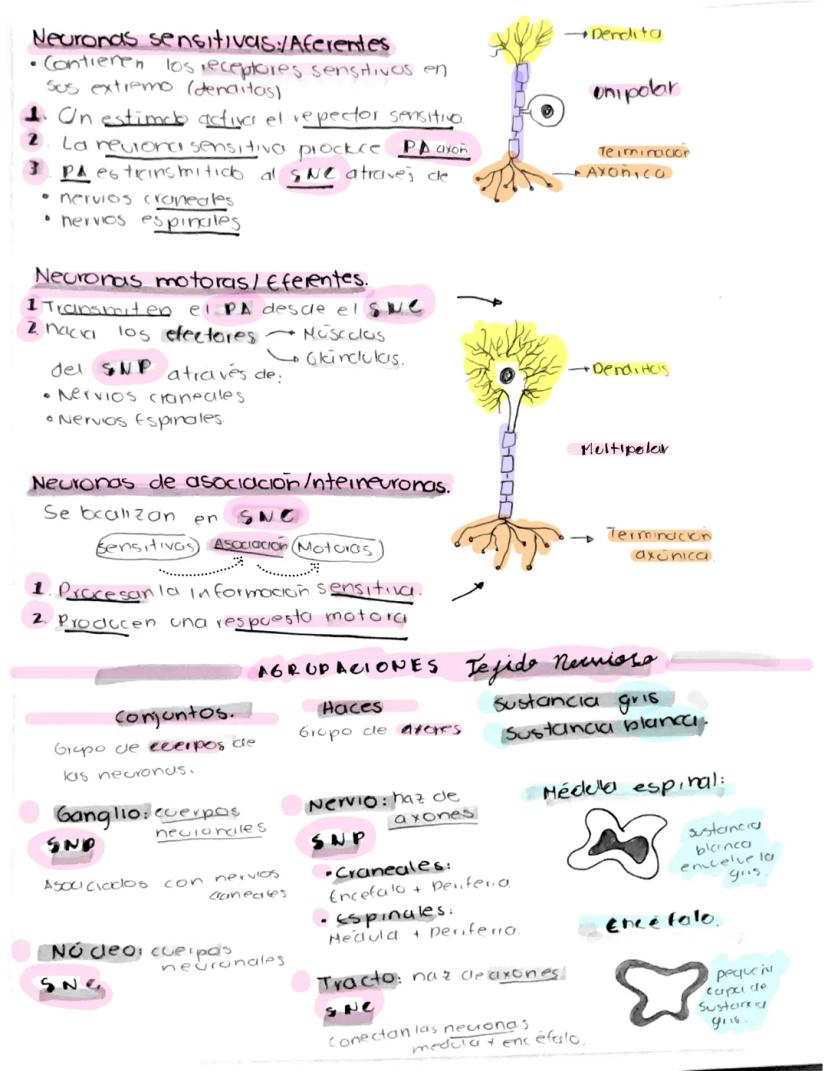 Neuronas sensitivas:/Aferentes
• Contienen los receptores sensitivos en
sus extremo (denditas)
1. Un estimulo activa el repector sensitivo.
2. La neurona sensitiva produce PA axón
3 PA es transmitido al SNC através de
• nervios craneales
• nervios espinales
Dendita
unipolar
Terminación
Axónica
Neuronas motoras/Eferentes.
1 Transmiten el PA desde el SNC
2. hacia los efectores
Músculos
Glándulas.
del SNP através de:
• Nervios craneales
• Nervios Espinales.
Denditas
Multipolar
Terminación
axónica
Neuronas de asociación/nterneuronas.
Se localizan en SNC
sensitivas Asociación Motoras
1. Procesan la información sensitiva.
2. Producen una respuesta motora
AGRUPACIONES Tejido Nervioso
Conjuntos.
Grupo de cuerpos de
las neuronas.
Ganglio: cuerpos
neuronales
SNP
Asociciados con nervios
craneales
Núcleo: cuerpos
neuronales
SNC
Haces
Grupo de axones
Nervio: haz de
axones
SNP
• Craneales:
Encéfalo + Periferia.
• Espinales:
Médula + Periferia.
Tracto: haz de axones
SNC
Conectan las neuronas
medula + encéfalo.
Sustancia gris
Sustancia blanca.
Médula espinal:
sustancia
blanca
envuelve la
gris
Encéfalo.
pequeña
capa de
sustancia
gris.